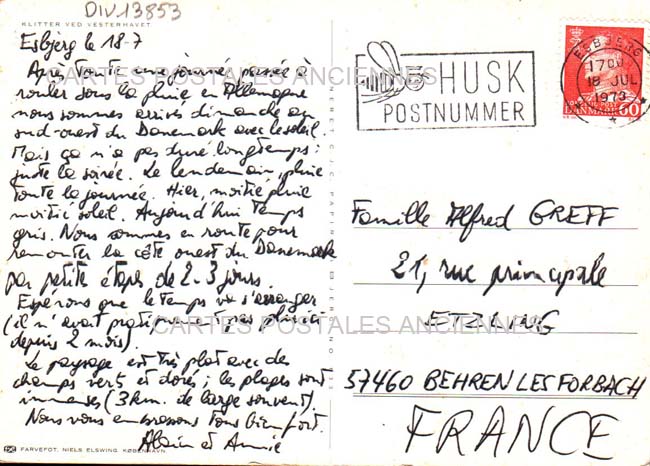 DIV.13853
KLITTER VED VESTERHAVET
Esbjerg le 18-7
Après toute une journée passée à
rouler sous la pluie en Allemagne
nous sommes arrivés dimanche au
sud-ouest du Danemark avec le soleil.
Mais ça n'a pas duré longtemps :
juste la soirée. Le lendemain, pluie
toute la journée. Hier, moitié pluie
moitié soleil. Aujourd'hui temps
gris. Nous sommes en route pour
remonter la côte ouest du Danemark
par petite étapes de 2-3 jours.
Espérons que le temps va s'arranger
(il n'avait pratiquement pas plu ici
depuis 2 mois).
Le paysage est très plat avec des
champs verts et dorés ; les plages sont
immenses (3 km. de large souvent)
Nous vous embrassons tous bien fort.
Alain et Annie
FARVEFOT. NIELS ELSWING. KØBENHAVN
HUSK
POSTNUMMER
ESBJERG
1700
18 JUL
1973
DANMARK 60
Famille Alfred GREFF
21, rue principale
ETZLING
57460 BEHREN LES FORBACH
FRANCE
CARTES POSTALES ANCIENNES
CARTES POSTALES ANCIENNES